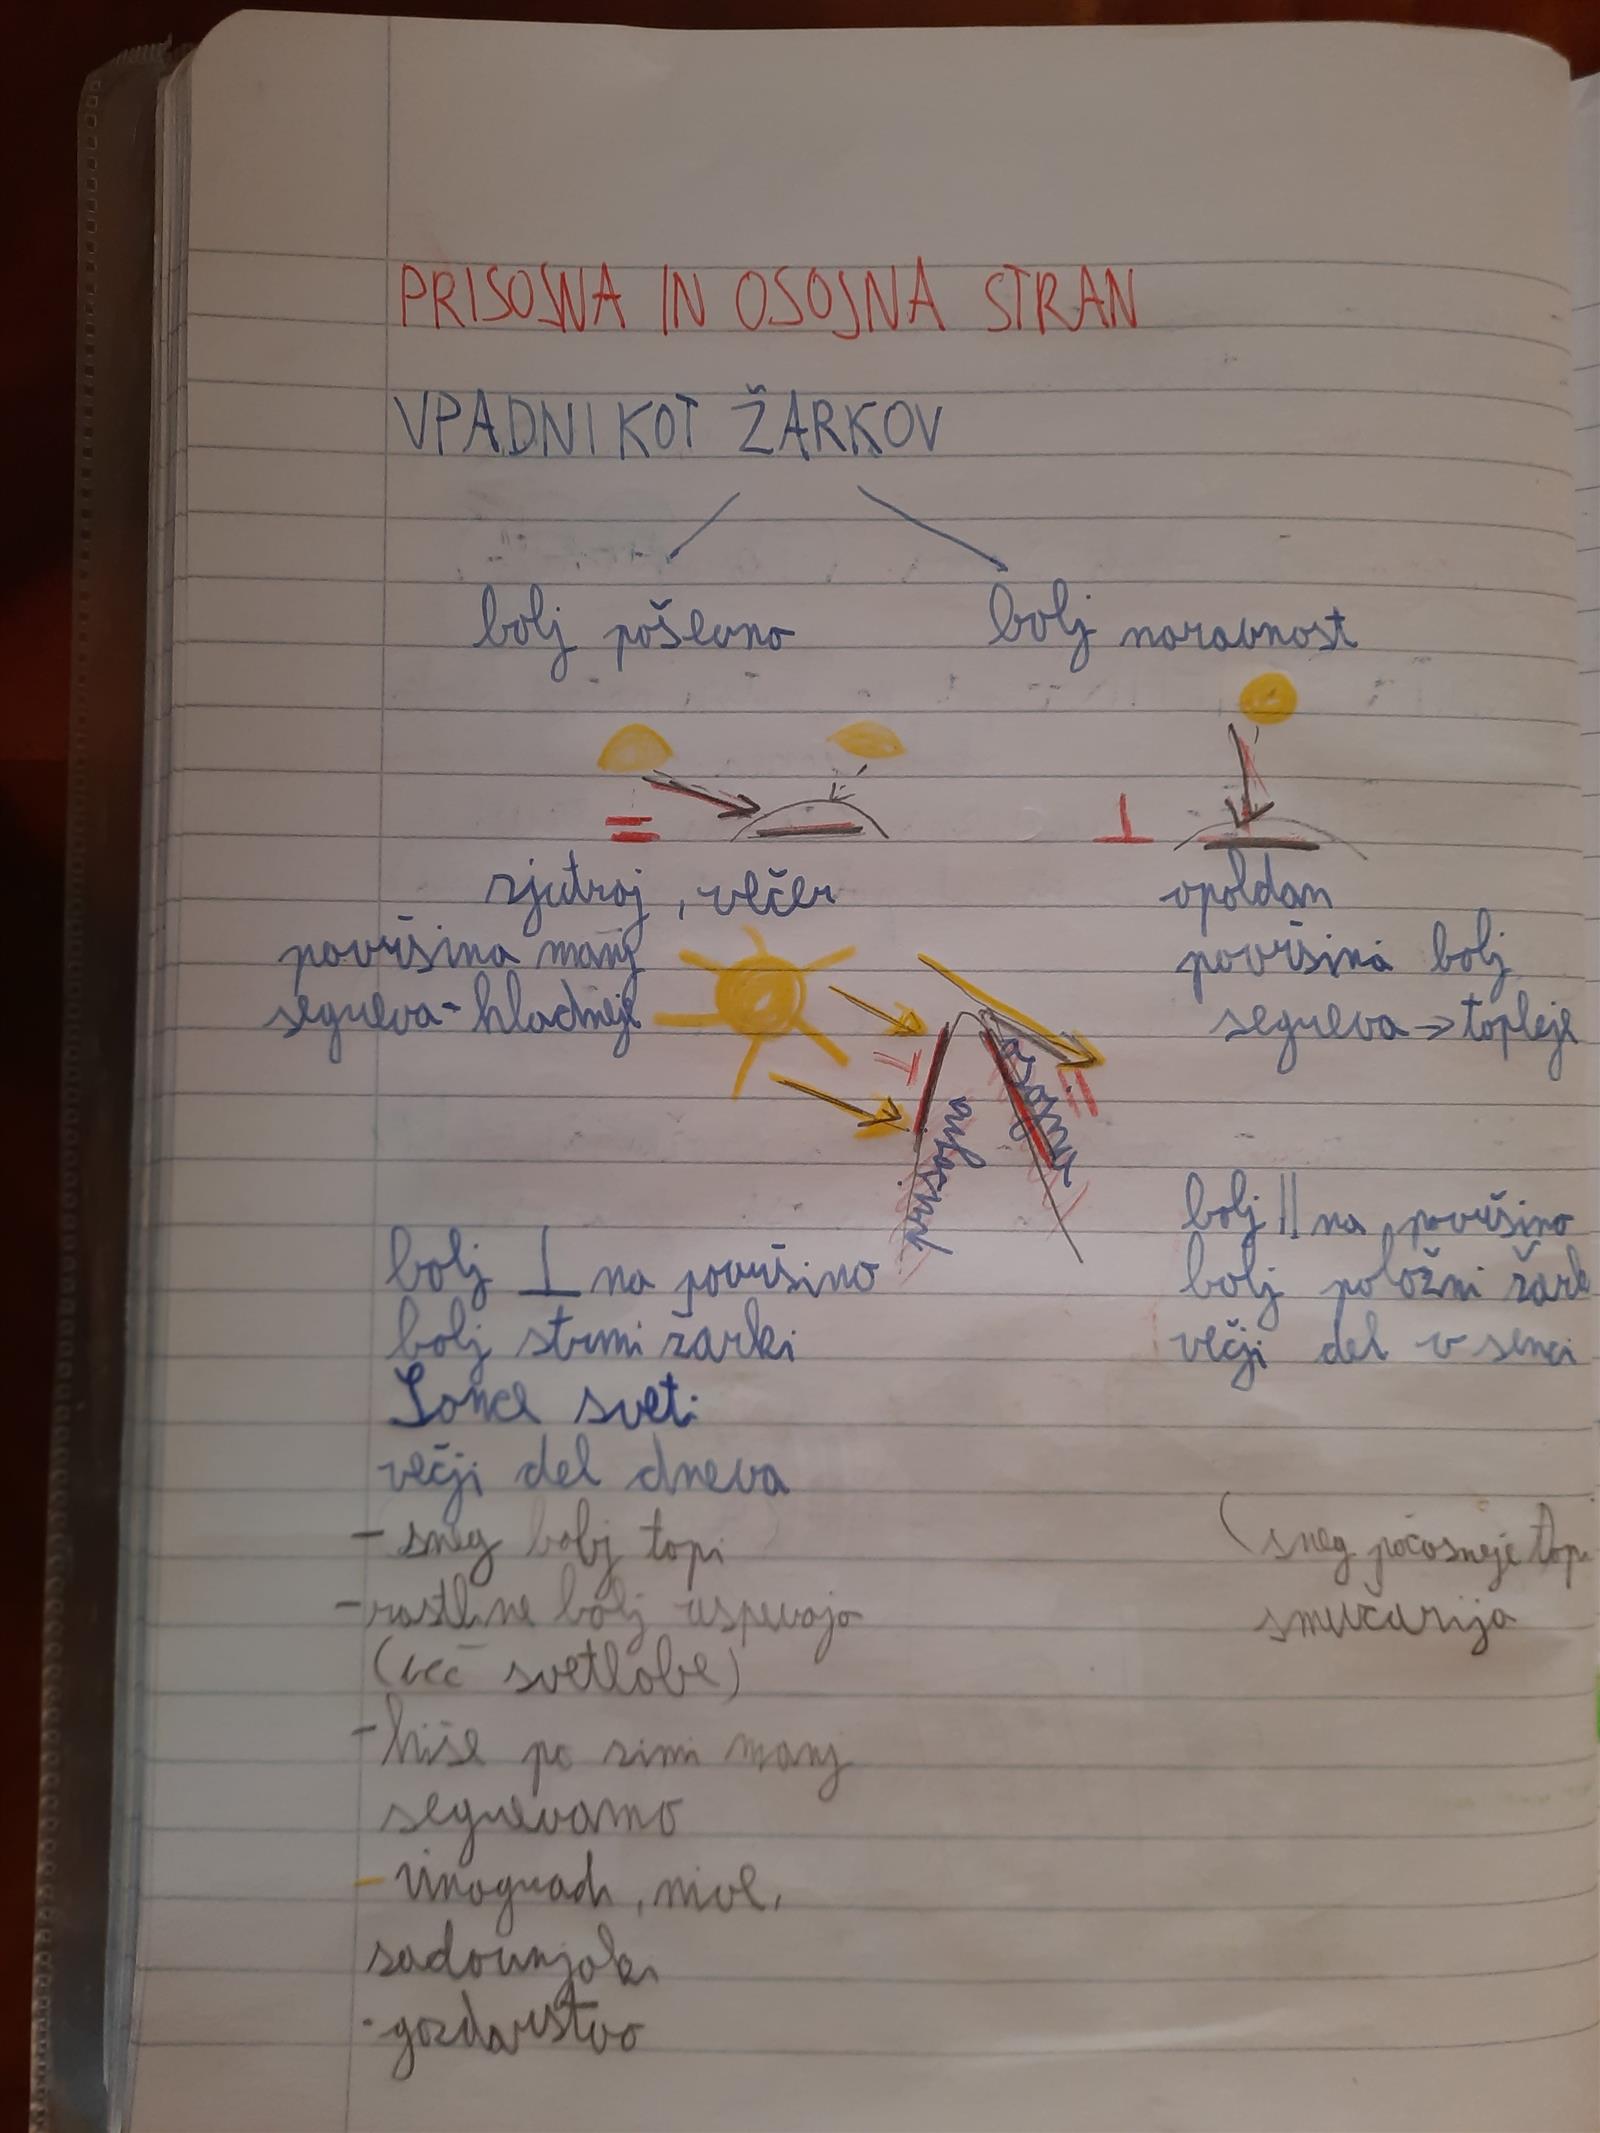 PRISOJNA IN OSOJNA STRAN
VPADNI KOT ŽARKOV
bolj poševno
bolj naravnost
zjutraj, večer
površina manj
segreva - hladneje
opoldan
površina bolj
segreva → topleje
prisojna
osojna
bolj ⊥ na površino
bolj strmi žarki
Sonce sveti
večji del dneva
- sneg bolj topi
- rastline bolj uspevajo
(več svetlobe)
- hiše po zimi manj
segrevamo
- vinogradi, nive,
sadovnjaki
- gozdarstvo
bolj || na površino
bolj položni žark
večji del v senci
(sneg počasneje topi
smučarija